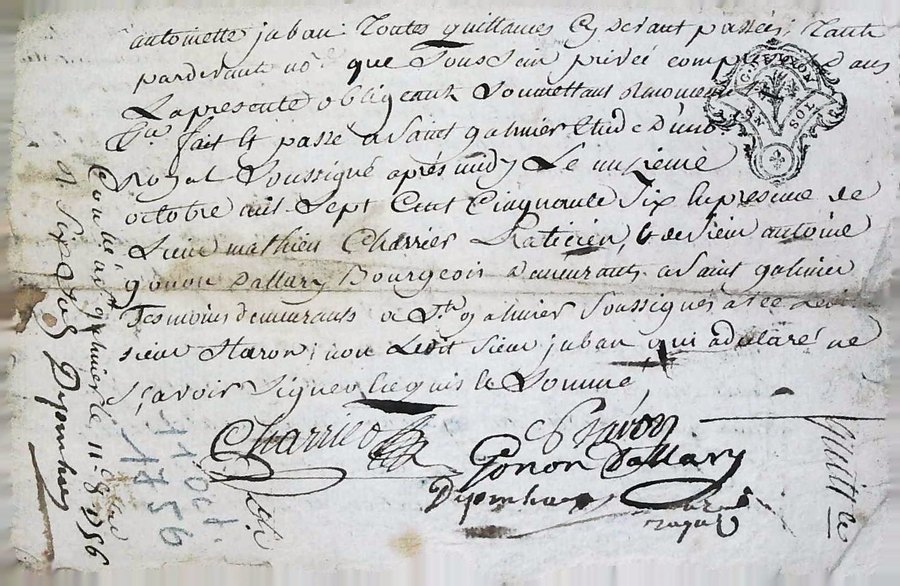 antoinette juban Toutes quittances Cy devant passées, Tant
pardevant no.re que Sous Sein privée compris Dans
La presente obligeant Soumettant Renonceant
&.a fait et passé a Saint galmier Etude D'uno.re
Royal Soussigné après midy Le onzieme
octobre mil Sept Cent Cinquante Six En presence de
Sieur mathieu Charrier Praticien, & de Sieur antoine
gonon Dallary Bourgeois Demeurants a Saint galmier
Tesmoins demeurants a St galmier Soussignés avec Ledit
sieur Staron, non Ledit Sieur juban qui a declaré ne
Sçavoir Signer Enquis Et Sommé
Charrier
Staron
Gonon Dallary
Dyomhes
no.re
royal
Con.lé à St galmier le 11 8bre 1756
R Six sols Dyomhes
11 Oct.
1756
quittce
GEN
SOL